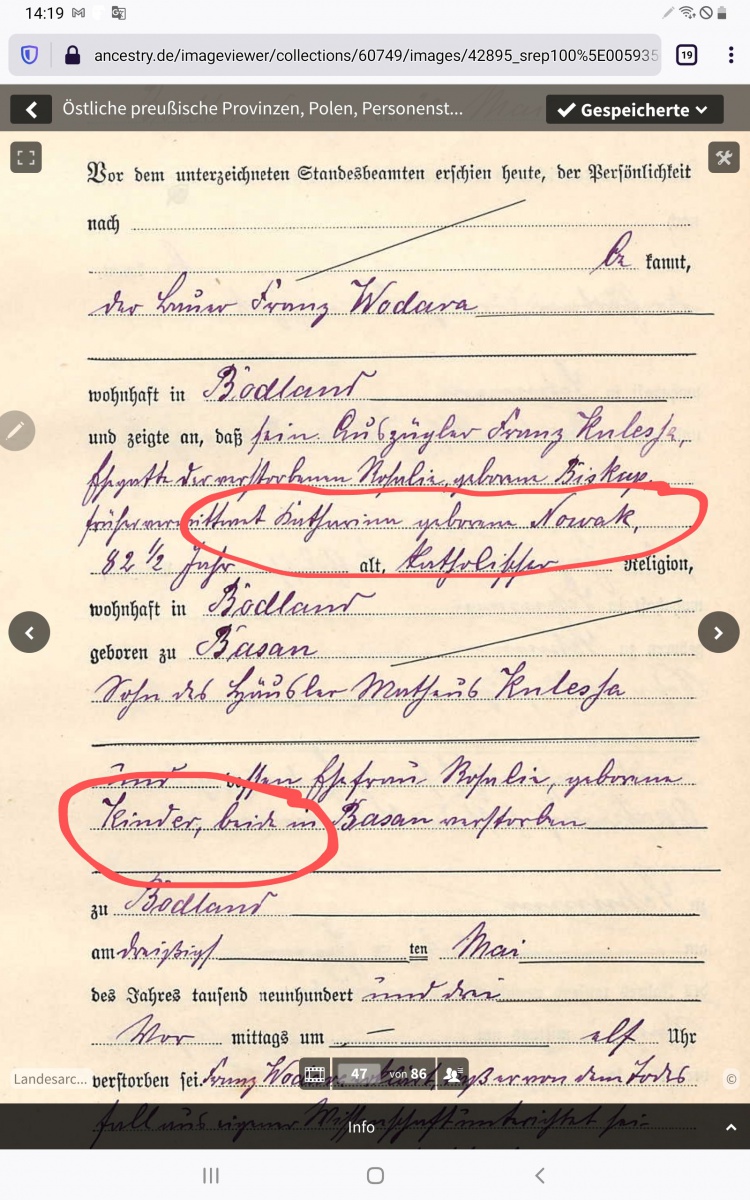 14:19
19
ancestry.de/imageviewer/collections/60749/images/42895_srep100%5E005935
Östliche preußische Provinzen, Polen, Personenst...
Gespeicherte
Vor dem unterzeichneten Standesbeamten erschien heute, der Persönlichkeit
nach
be kannt,
der Bauer Franz Wodara
wohnhaft in Bodland
und zeigte an, daß sein Auszügler Franz Kulessa,
Ehegatte der verstorbenen Rosalie, geborene Biskup,
früher verwittwet Katharina geborene Nowak,
82 1/2 Jahr alt, katholischer Religion,
wohnhaft in Bodland
geboren zu Basan
Sohn des Häusler Matheus Kulessa
und dessen Ehefrau Rosalie, geborene
Kinder, beide in Basan verstorben
zu Bodland
am dreißigsten Mai
des Jahres tausend neunhundert und drei
Vor mittags um elf Uhr
verstorben sei. Franz daß er von dem Todes
fall aus eigener Wissenschaft unterrichtet sei
47 von 86
Landesarc...
©
Info